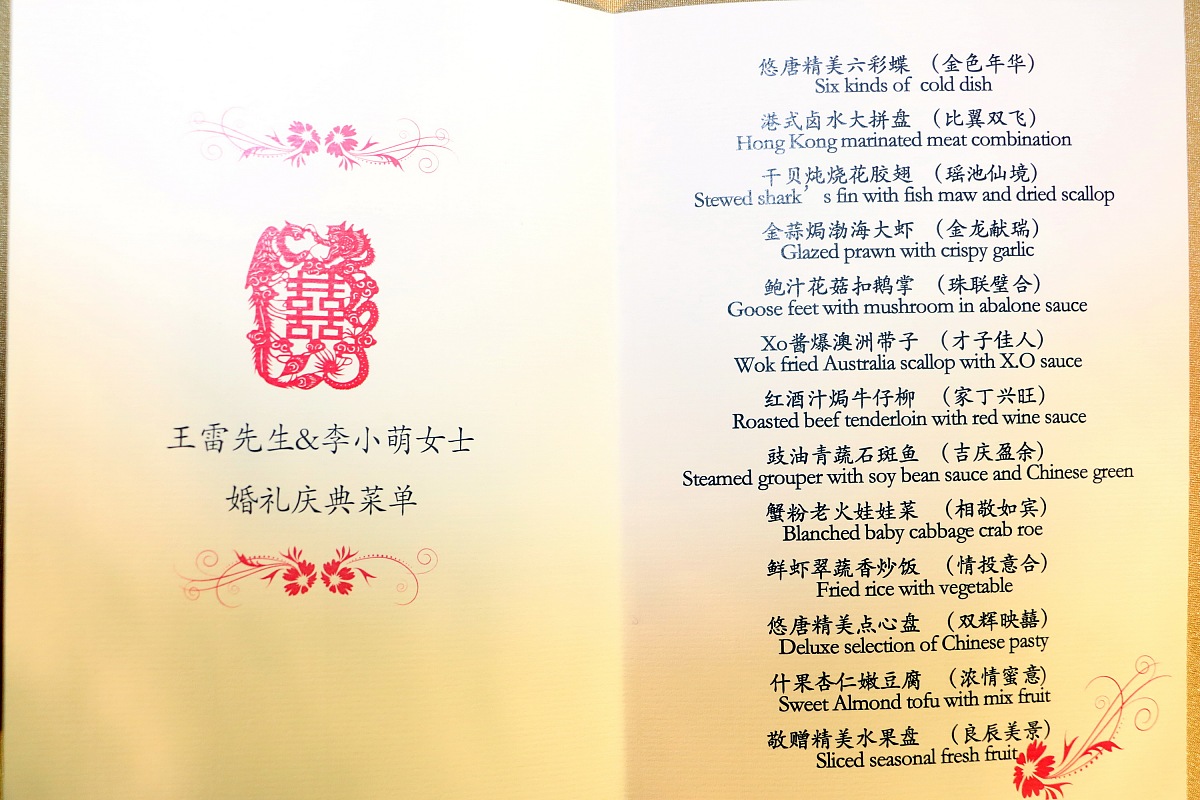 囍
王雷先生&李小萌女士
婚礼庆典菜单
悠唐精美六彩蝶 （金色年华）
Six kinds of cold dish
港式卤水大拼盘 （比翼双飞）
Hong Kong marinated meat combination
干贝炖烧花胶翅 （瑶池仙境）
Stewed shark’s fin with fish maw and dried scallop
金蒜焗渤海大虾 （金龙献瑞）
Glazed prawn with crispy garlic
鲍汁花菇扣鹅掌 （珠联璧合）
Goose feet with mushroom in abalone sauce
Xo酱爆澳洲带子 （才子佳人）
Wok fried Australia scallop with X.O sauce
红酒汁焗牛仔柳 （家丁兴旺）
Roasted beef tenderloin with red wine sauce
豉油青蔬石斑鱼 （吉庆盈余）
Steamed grouper with soy bean sauce and Chinese green
蟹粉老火娃娃菜 （相敬如宾）
Blanched baby cabbage crab roe
鲜虾翠蔬香炒饭 （情投意合）
Fried rice with vegetable
悠唐精美点心盘 （双辉映囍）
Deluxe selection of Chinese pasty
什果杏仁嫩豆腐 （浓情蜜意）
Sweet Almond tofu with mix fruit
敬赠精美水果盘 （良辰美景）
Sliced seasonal fresh fruit